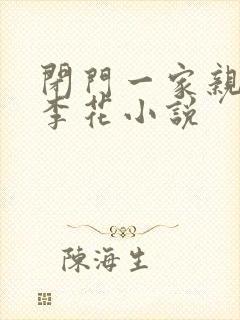 閉門一家親
李花小説
陳海生